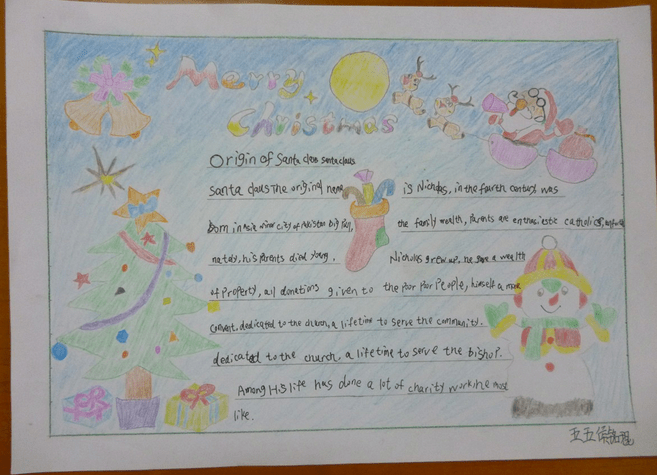 Merry
Christmas
Origin of Santa claus santaclaus
santa claus The original name is Nicholas, in the fourth century was
Born in asia minor city of big, the family wealth, parents are enthusiastic catholics,
nately, his parents died young. Nicholas grew up, he gave a wealth
of property, all donations given to the poor poor People, himself a
convent, dedicated to the church, a lifetime to serve the community.
dedicated to the church, a lifetime to serve the bishop.
Among His life has done a lot of charity work he most
like.
五五